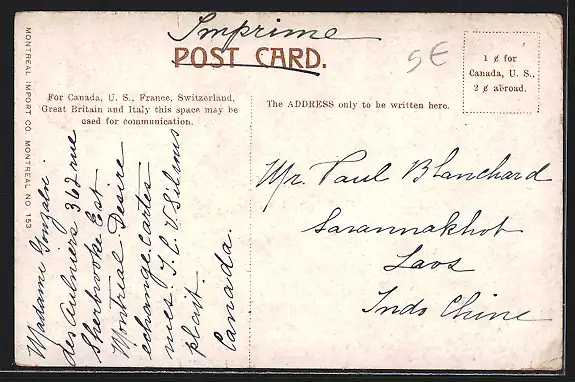 Imprimé
POST CARD.
5€
1 ¢ for
Canada, U. S.,
2 ¢ abroad.
For Canada, U. S., France, Switzerland,
Great Britain and Italy this space may be
used for communication.
The ADDRESS only to be written here.
MONTREAL IMPORT CO. MONTREAL NO. 153
Madame Gonzalve
des Aulniers 362 rue
Sherbrooke Est
Montreal Desire
echange cartes
vues. T. C. V. S'il vous
plait.
Canada.
Mr. Paul Blanchard
Savannakhet
Laos
Indo Chine